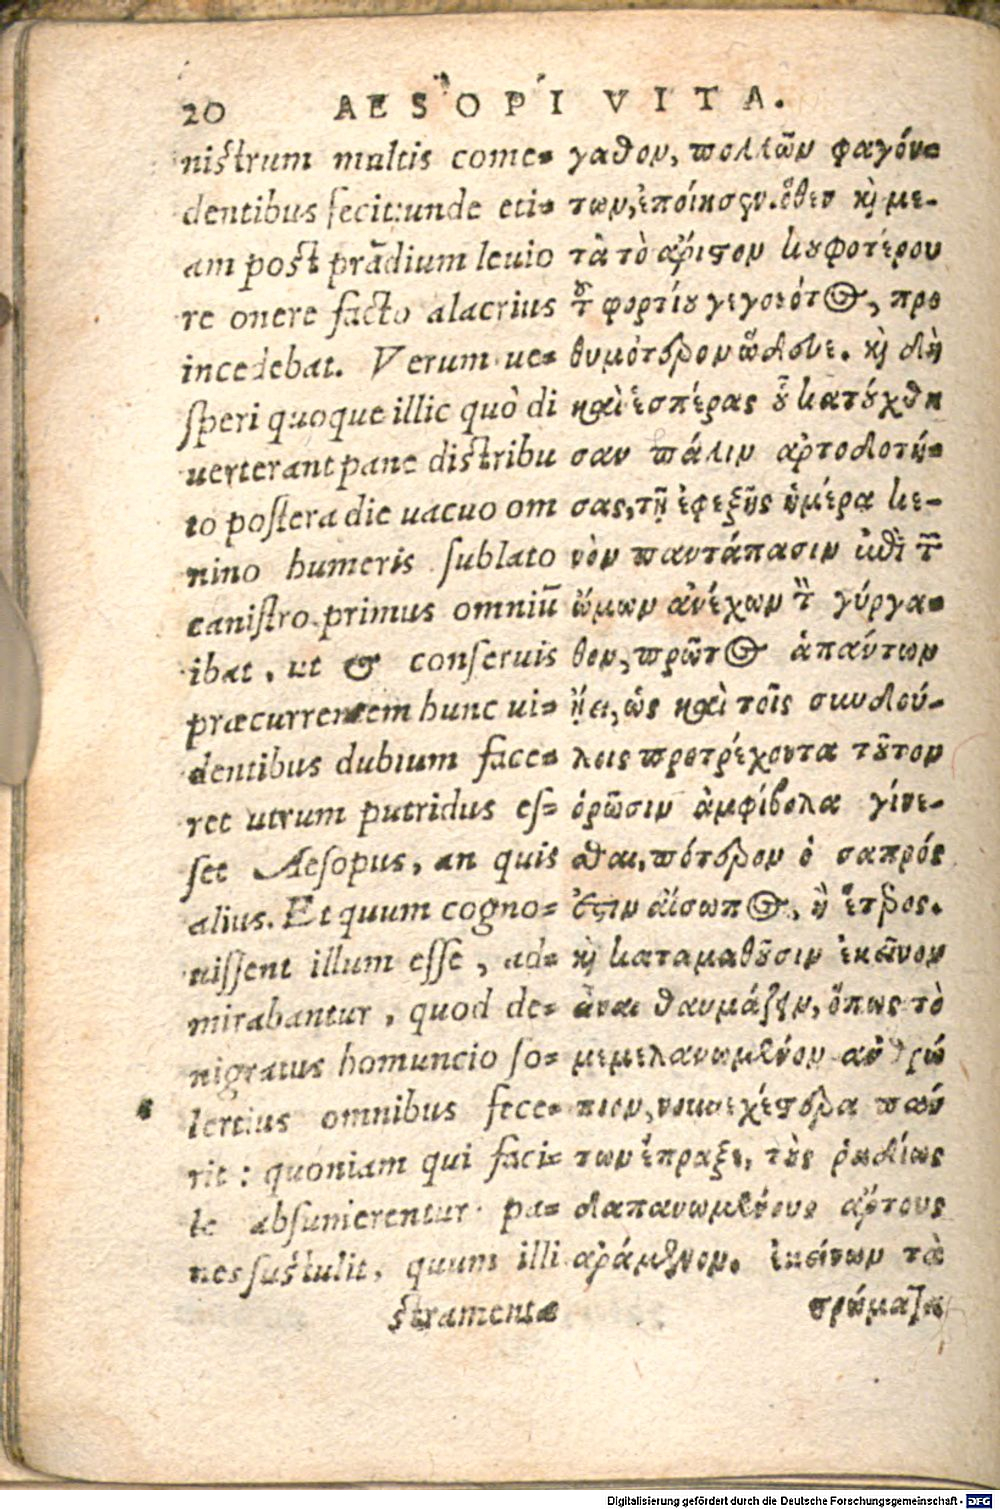 20 AESOPI VITA.
nistrum multis come-
dentibus fecit: unde eti-
am post prãdium leuio
re onere facto alacrius
incedebat. Verum ue-
speri quoque illic quò di
uerterant pane distribu
to postera die uacuo om
nino humeris sublato
canistro primus omniũ
ibat, ut & conseruis
præcurrentem hunc ui-
dentibus dubium face-
ret utrum putridus es-
set Aesopus, an quis
alius. Et quum cogno-
uissent illum esse, ad-
mirabantur, quod de-
nigratus homuncio so-
lertius omnibus fece-
rit: quoniam qui faci-
le absumerentur pa-
nes sustulit, quum illi
stramenta
γαθον, πολλῶν φαγόν-
των, ἐποίησεν. ὅθεν κὶ με-
τὰ τὸ ἄριστον κουφοτέρου
τοῦ φορτίου γεγονότος, προ
θυμότερον ὥδευε. κὶ δὴ
καὶ ἑσπέρας οὗ κατήχθη
σαν πάλιν ἀρτοδοτή-
σας, τῇ ἐφεξῆς ἡμέρα κε-
νὸν παντάπασιν ἐπὶ τῶν
ὤμων ἀνέχων τὸν γύργα-
θον, πρῶτος ἁπάντων
ᾔει, ὡς καὶ τοῖς συνδού-
λοις προτρέχοντα τοῦτον
ὁρῶσιν ἀμφίβολα γίνε-
σθαι, πότερον ὁ σαπρός
ἐστιν αἴσωπος, ἢ ἕτερος.
κὶ καταμαθοῦσιν ἐκεῖνον
εἶναι θαυμάζειν, ὅπως τὸ
μεμελανωμένον ἀνθρώ
πιον, νουνεχέστερα πάν
των ἔπραξε, τοὺς ῥαδίως
δαπανωμένους ἄρτους
ἀράμενον. ἐκείνων τὰ
στρώματα
Digitalisierung gefördert durch die Deutsche Forschungsgemeinschaft - DFG